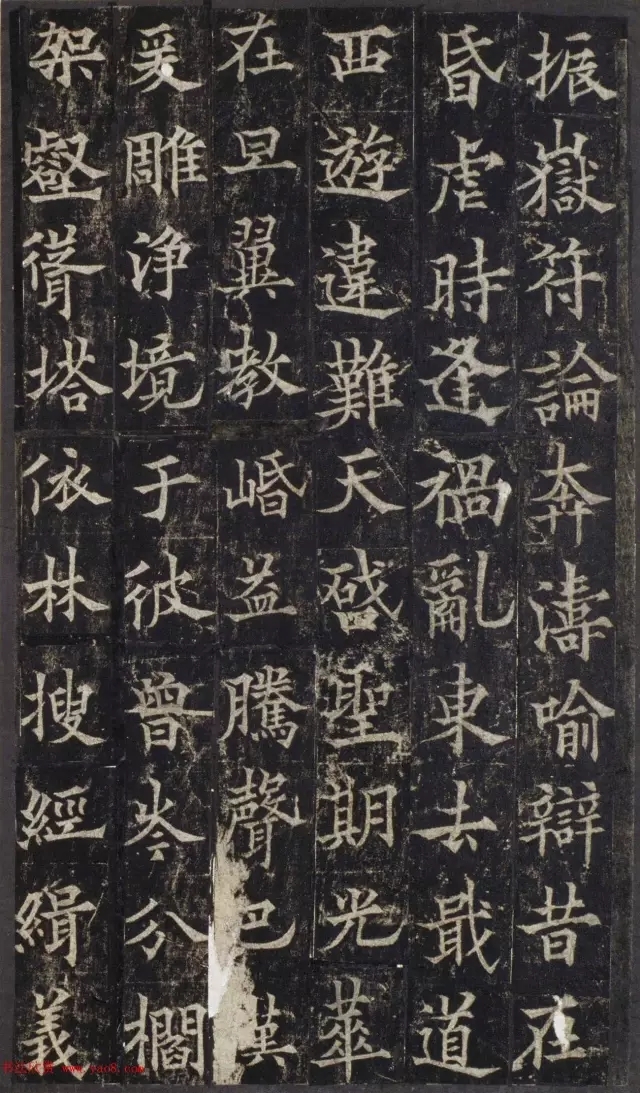 振嶽符論奔濤喻辯昔在
昏虐時逢禍亂東去戢道
西遊違難天啓聖期光華
在旦翼教崏益騰聲巴漢
爰雕浄境于彼曾岑分櫩
架壑聳塔依林搜經緝義
www.yac8.com